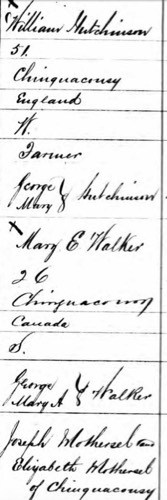 x
William Hutchinson
51
Chinguacousy
England
W.
Farmer
George
Mary } Hutchinson
x
Mary E Walker
26
Chinguacousy
Canada
S.
George
Mary A } Walker
Joseph Mothersel and
Elizabeth Mothersel
of Chinguacousy